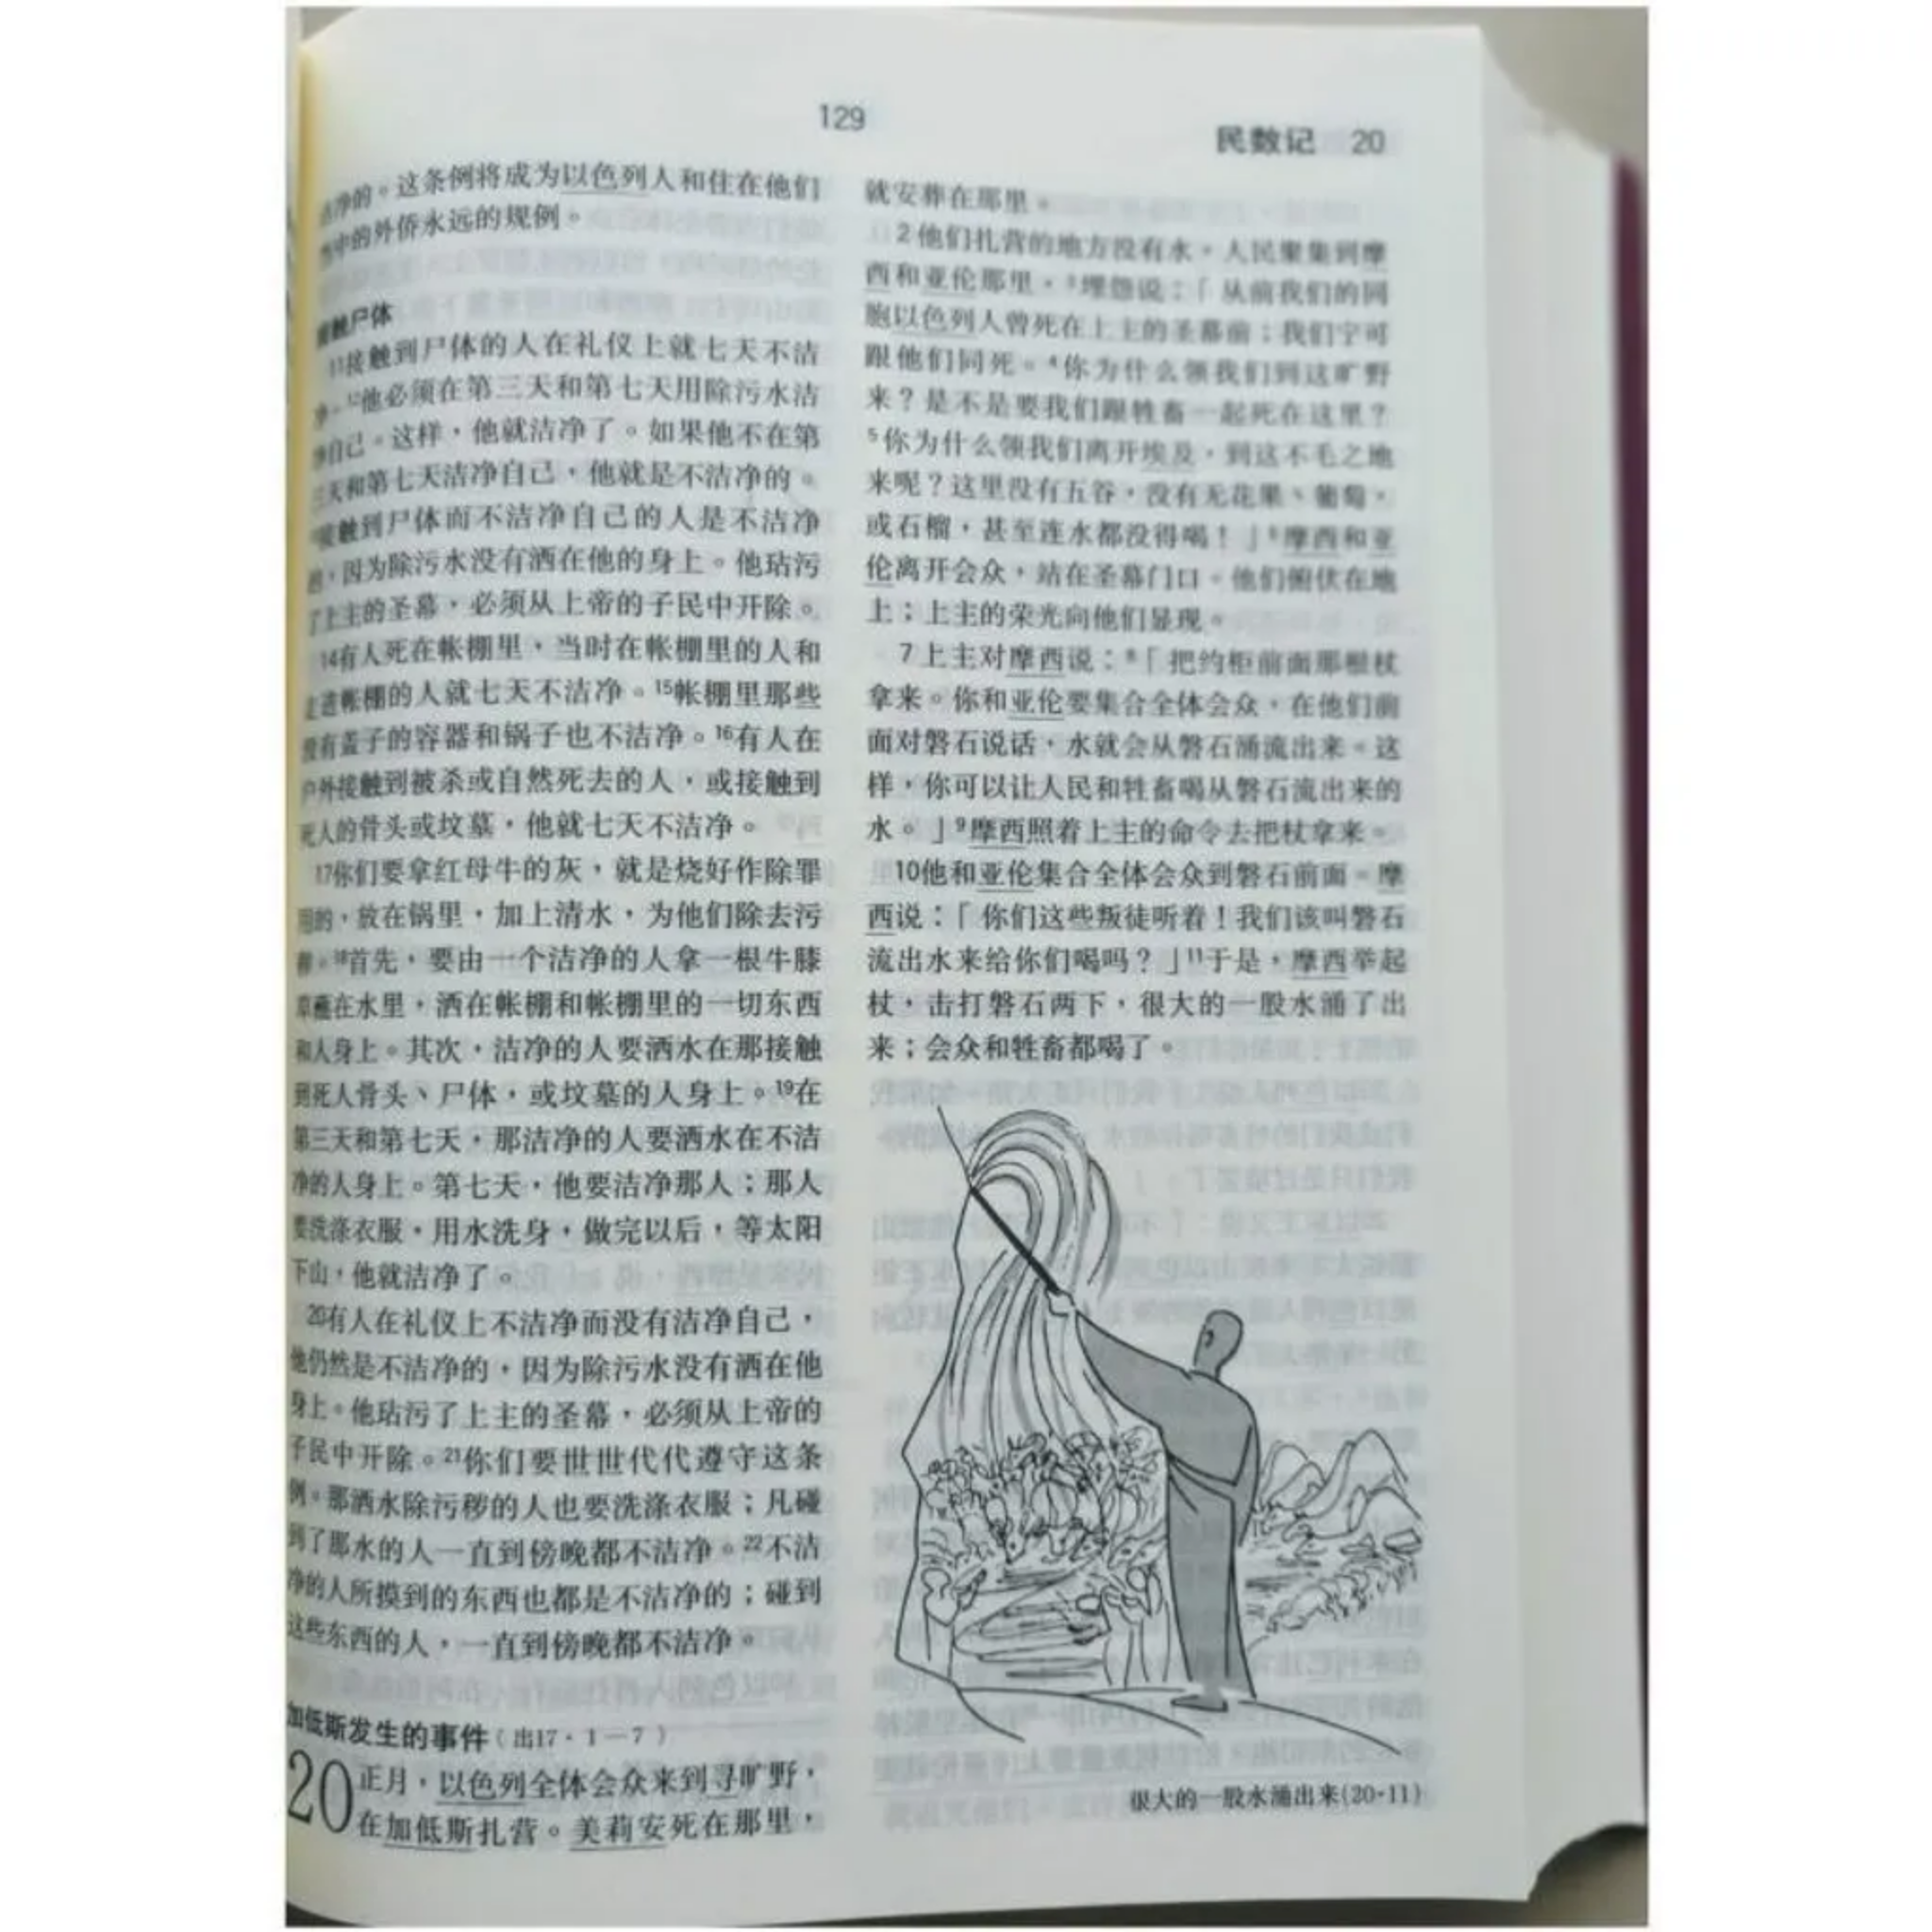 129
民数记 20
净的。这条例将成为以色列人和住在他们
中的外侨永远的规例。
接触尸体
11接触到尸体的人在礼仪上就七天不洁
净。12他必须在第三天和第七天用除污水洁
净自己。这样,他就洁净了。如果他不在第
三天和第七天洁净自己,他就是不洁净的。
接触到尸体而不洁净自己的人是不洁净
的,因为除污水没有洒在他的身上。他玷污
了上主的圣幕,必须从上帝的子民中开除。
14有人死在帐棚里,当时在帐棚里的人和
走进帐棚的人就七天不洁净。15帐棚里那些
没有盖子的容器和锅子也不洁净。16有人在
户外接触到被杀或自然死去的人,或接触到
死人的骨头或坟墓,他就七天不洁净。
17你们要拿红母牛的灰,就是烧好作除罪
用的,放在锅里,加上清水,为他们除去污
秽。18首先,要由一个洁净的人拿一根牛膝
草蘸在水里,洒在帐棚和帐棚里的一切东西
和人身上。其次,洁净的人要洒水在那接触
到死人骨头、尸体,或坟墓的人身上。19在
第三天和第七天,那洁净的人要洒水在不洁
净的人身上。第七天,他要洁净那人;那人
要洗涤衣服,用水洗身,做完以后,等太阳
下山,他就洁净了。
20有人在礼仪上不洁净而没有洁净自己,
他仍然是不洁净的,因为除污水没有洒在他
身上。他玷污了上主的圣幕,必须从上帝的
子民中开除。21你们要世世代代遵守这条
例。那洒水除污秽的人也要洗涤衣服;凡碰
到了那水的人一直到傍晚都不洁净。22不洁
净的人所摸到的东西也都是不洁净的;碰到
这些东西的人,一直到傍晚都不洁净。
加低斯发生的事件(出17·1—7)
20正月,以色列全体会众来到寻旷野,
在加低斯扎营。美莉安死在那里,
就安葬在那里。
2他们扎营的地方没有水。人民聚集到摩
西和亚伦那里,3埋怨说:「从前我们的同
胞以色列人曾死在上主的圣幕前;我们宁可
跟他们同死。4你为什么领我们到这旷野
来?是不是要我们跟牲畜一起死在这里?
5你为什么领我们离开埃及,到这不毛之地
来呢?这里没有五谷,没有无花果、葡萄,
或石榴,甚至连水都没得喝!」6摩西和亚
伦离开会众,站在圣幕门口。他们俯伏在地
上;上主的荣光向他们显现。
7上主对摩西说:8「把约柜前面那根杖
拿来。你和亚伦要集合全体会众,在他们前
面对磐石说话,水就会从磐石涌流出来。这
样,你可以让人民和牲畜喝从磐石流出来的
水。」9摩西照着上主的命令去把杖拿来。
10他和亚伦集合全体会众到磐石前面。摩
西说:「你们这些叛徒听着!我们该叫磐石
流出水来给你们喝吗?」11于是,摩西举起
杖,击打磐石两下,很大的一股水涌了出
来;会众和牲畜都喝了。
很大的一股水涌出来(20·11)